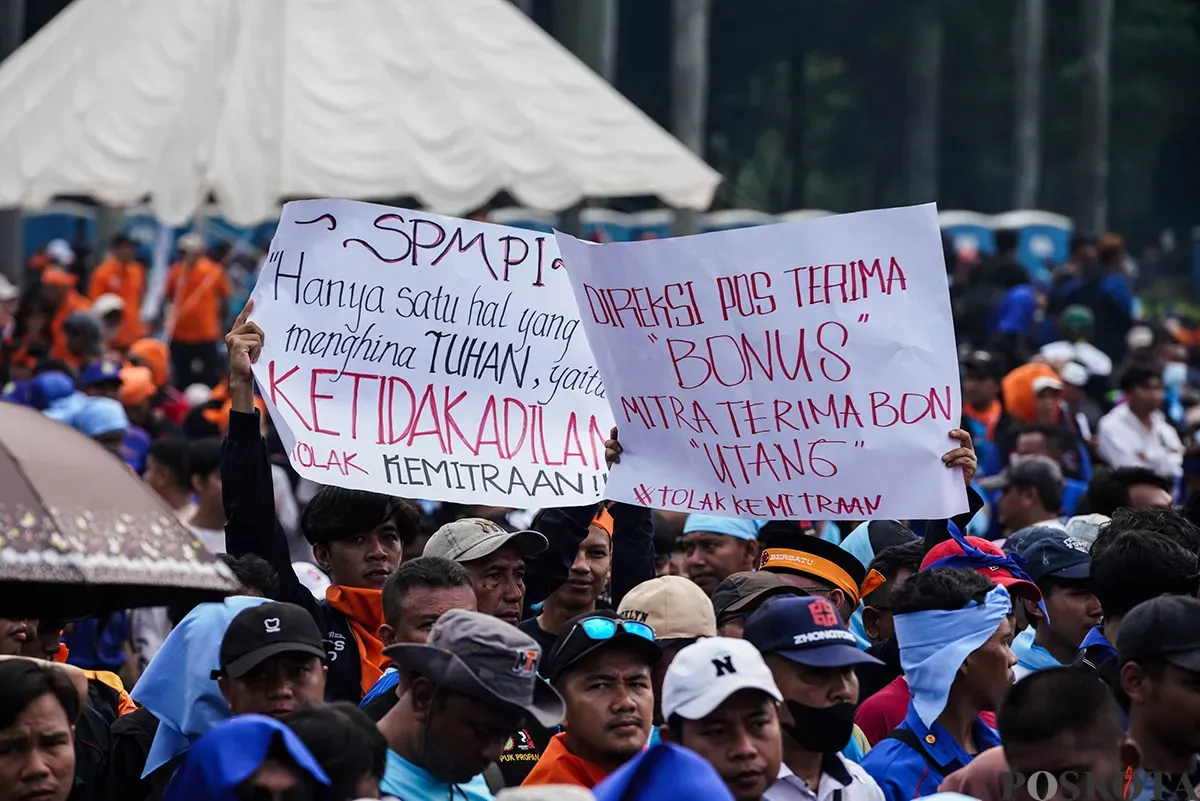 SPMPI
"Hanya satu hal yang
menghina TUHAN, yaitu
KETIDAKADILAN
TOLAK KEMITRAAN !!
DIREKSI POS TERIMA
"BONUS"
MITRA TERIMA BON
"UTANG"
#TOLAK KEMITRAAN
BERSATU
ZHONGTONG
N
PUK PROPAN
POSKOTA